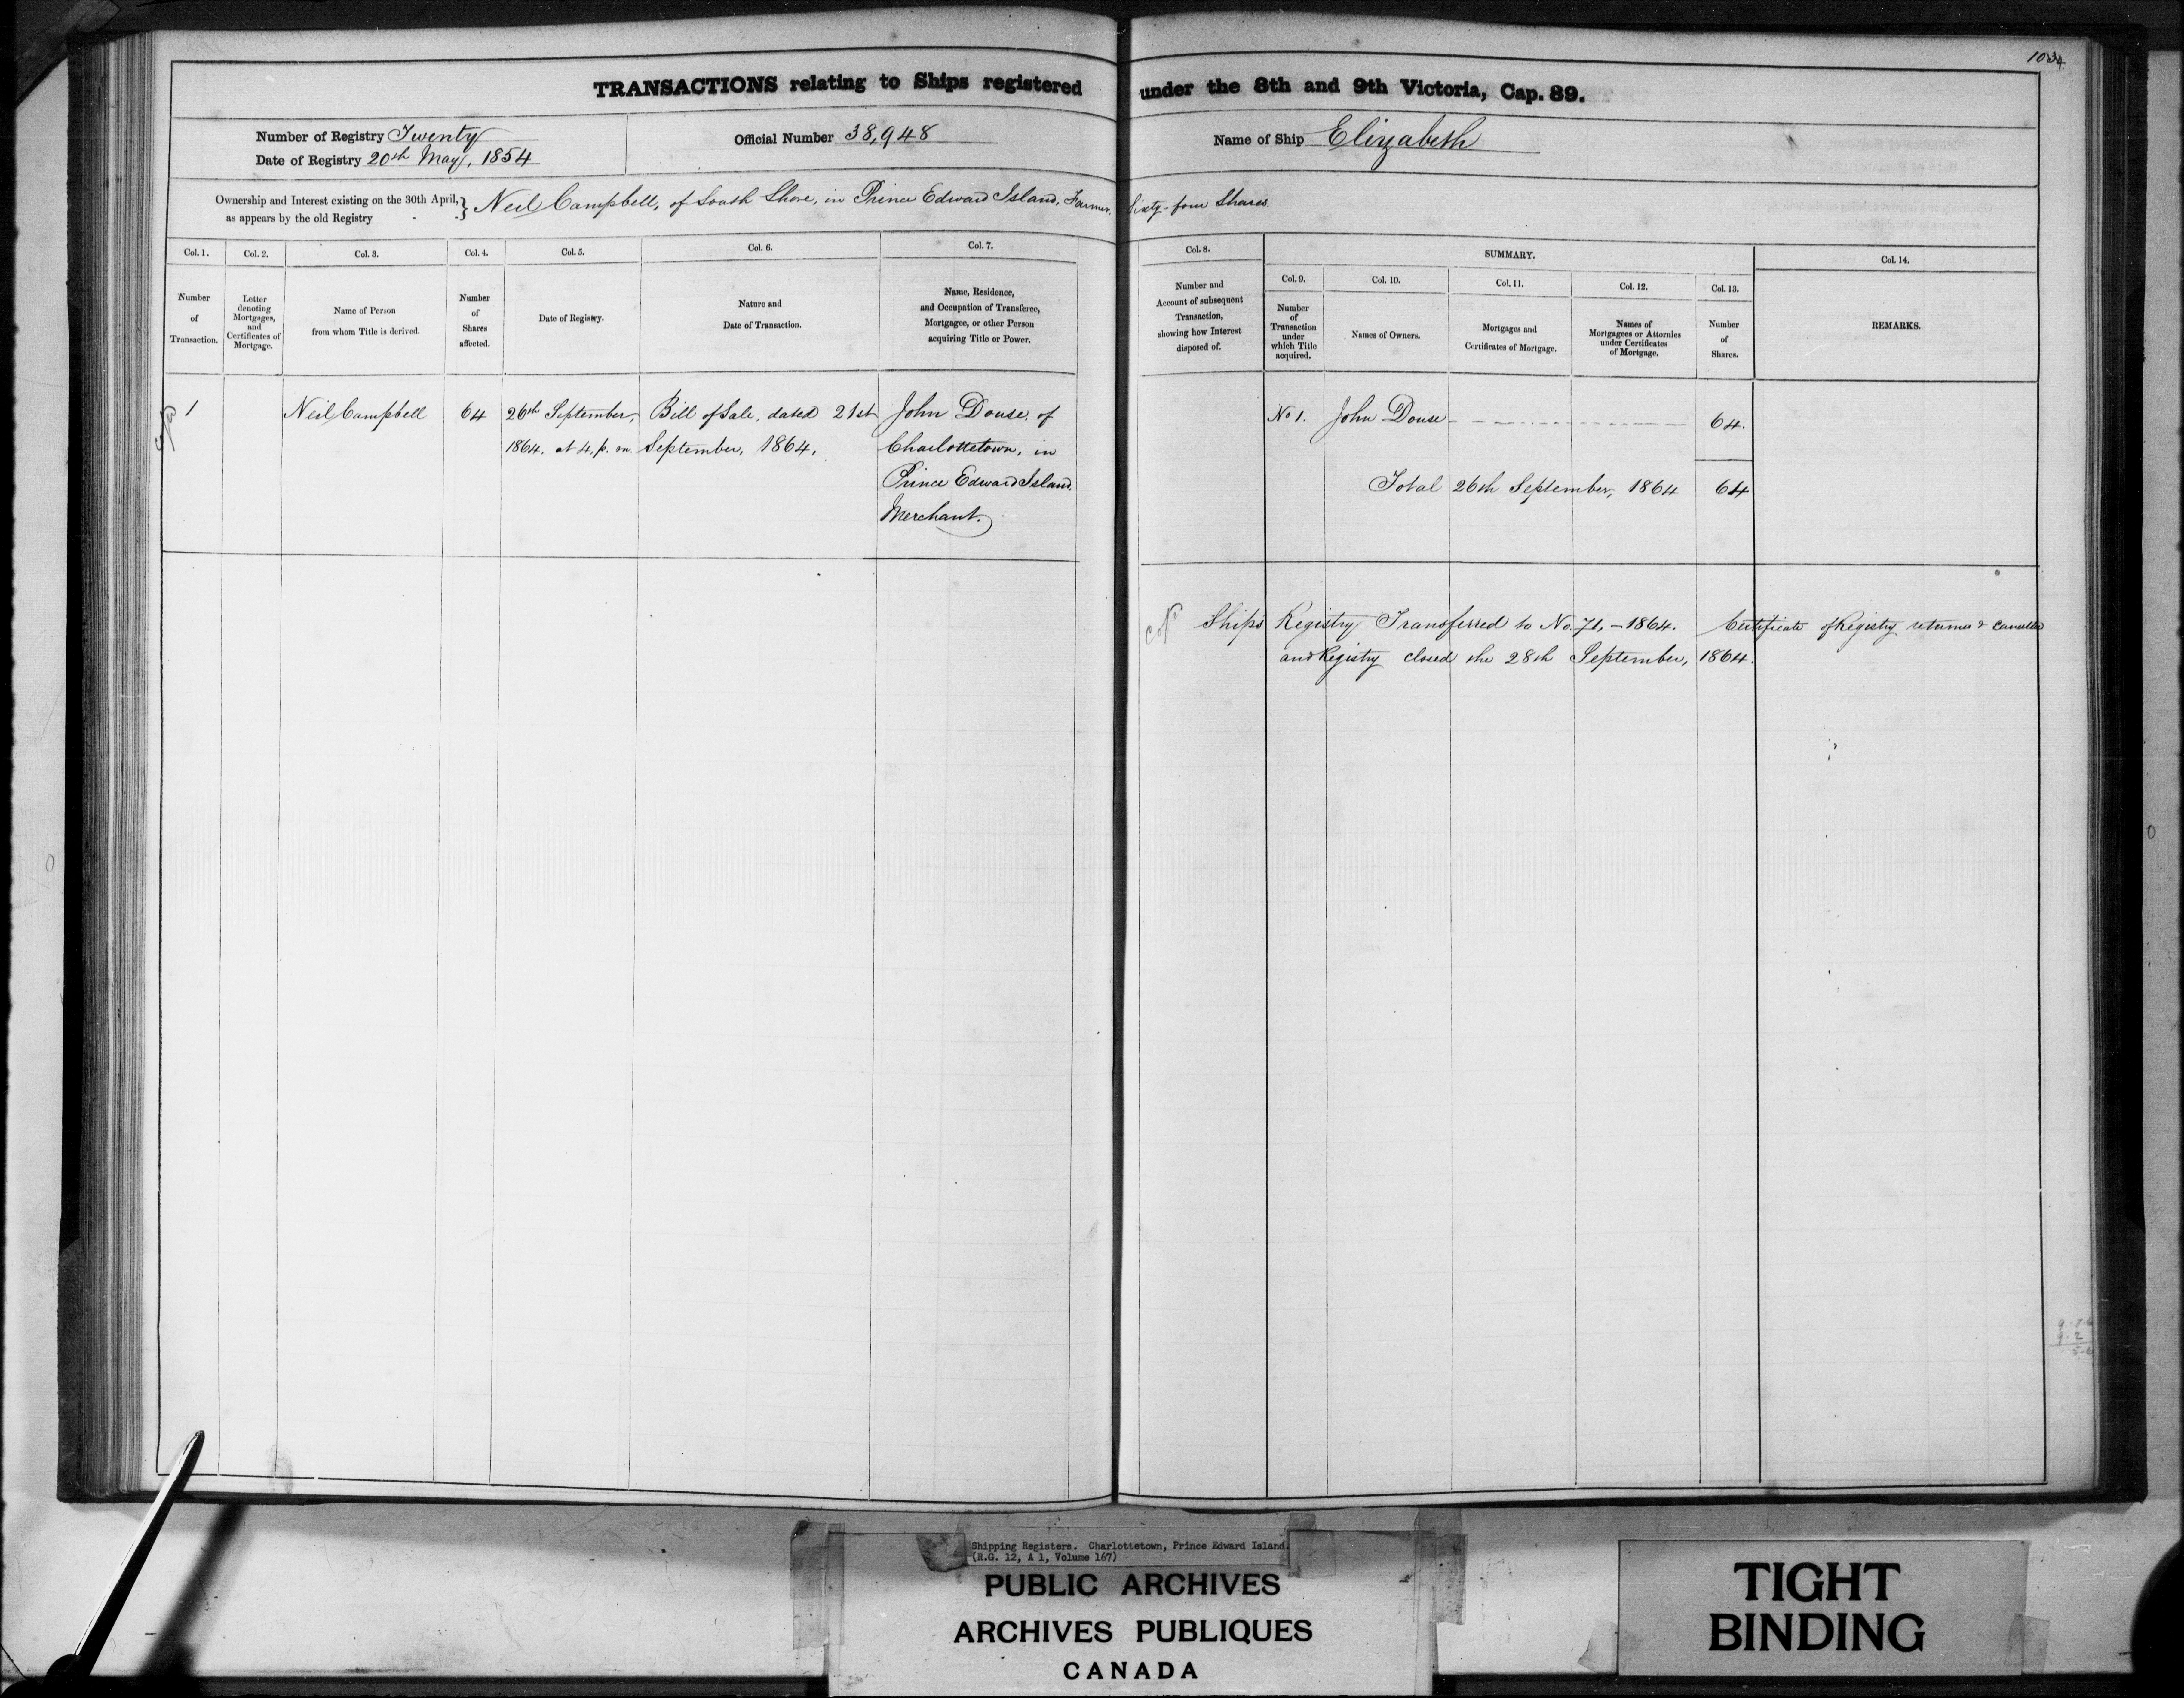 1034
TRANSACTIONS relating to Ships registered under the 8th and 9th Victoria, Cap. 89.
Number of Registry Twenty
Date of Registry 20th May, 1854
Official Number 38,948
Name of Ship Elizabeth
Ownership and Interest existing on the 30th April, as appears by the old Registry } Neil Campbell, of South Shore, in Prince Edward Island, Farmer, Sixty-four Shares.
Col. 1.
Number
of
Transaction.
Col. 2.
Letter
denoting
Mortgages,
and
Certificates of
Mortgage.
Col. 3.
Name of Person
from whom Title is derived.
Col. 4.
Number
of
Shares
affected.
Col. 5.
Date of Registry.
Col. 6.
Nature and
Date of Transaction.
Col. 7.
Name, Residence,
and Occupation of Transferee,
Mortgagee, or other Person
acquiring Title or Power.
Col. 8.
Number and
Account of subsequent
Transaction,
showing how Interest
disposed of.
SUMMARY.
Col. 9.
Number
of
Transaction
under
which Title
acquired.
Col. 10.
Names of Owners.
Col. 11.
Mortgages and
Certificates of Mortgage.
Col. 12.
Names of
Mortgagees or Attornies
under Certificates
of Mortgage.
Col. 13.
Number
of
Shares.
Col. 14.
REMARKS.
1
Neil Campbell
64
26th September,
1864. at 4, p. m.
Bill of Sale, dated 21st
September, 1864.
John Douse, of
Charlottetown, in
Prince Edward Island.
Merchant.
No 1. John Douse 64.
Total 26th September, 1864 64
Ship's Registry Transferred to No. 71, - 1864. Certificate of Registry returned & cancelled
and Registry closed the 28th September, 1864.
Shipping Registers. Charlottetown, Prince Edward Island.
(R.G. 12, A 1, Volume 167)
PUBLIC ARCHIVES
ARCHIVES PUBLIQUES
CANADA
TIGHT
BINDING